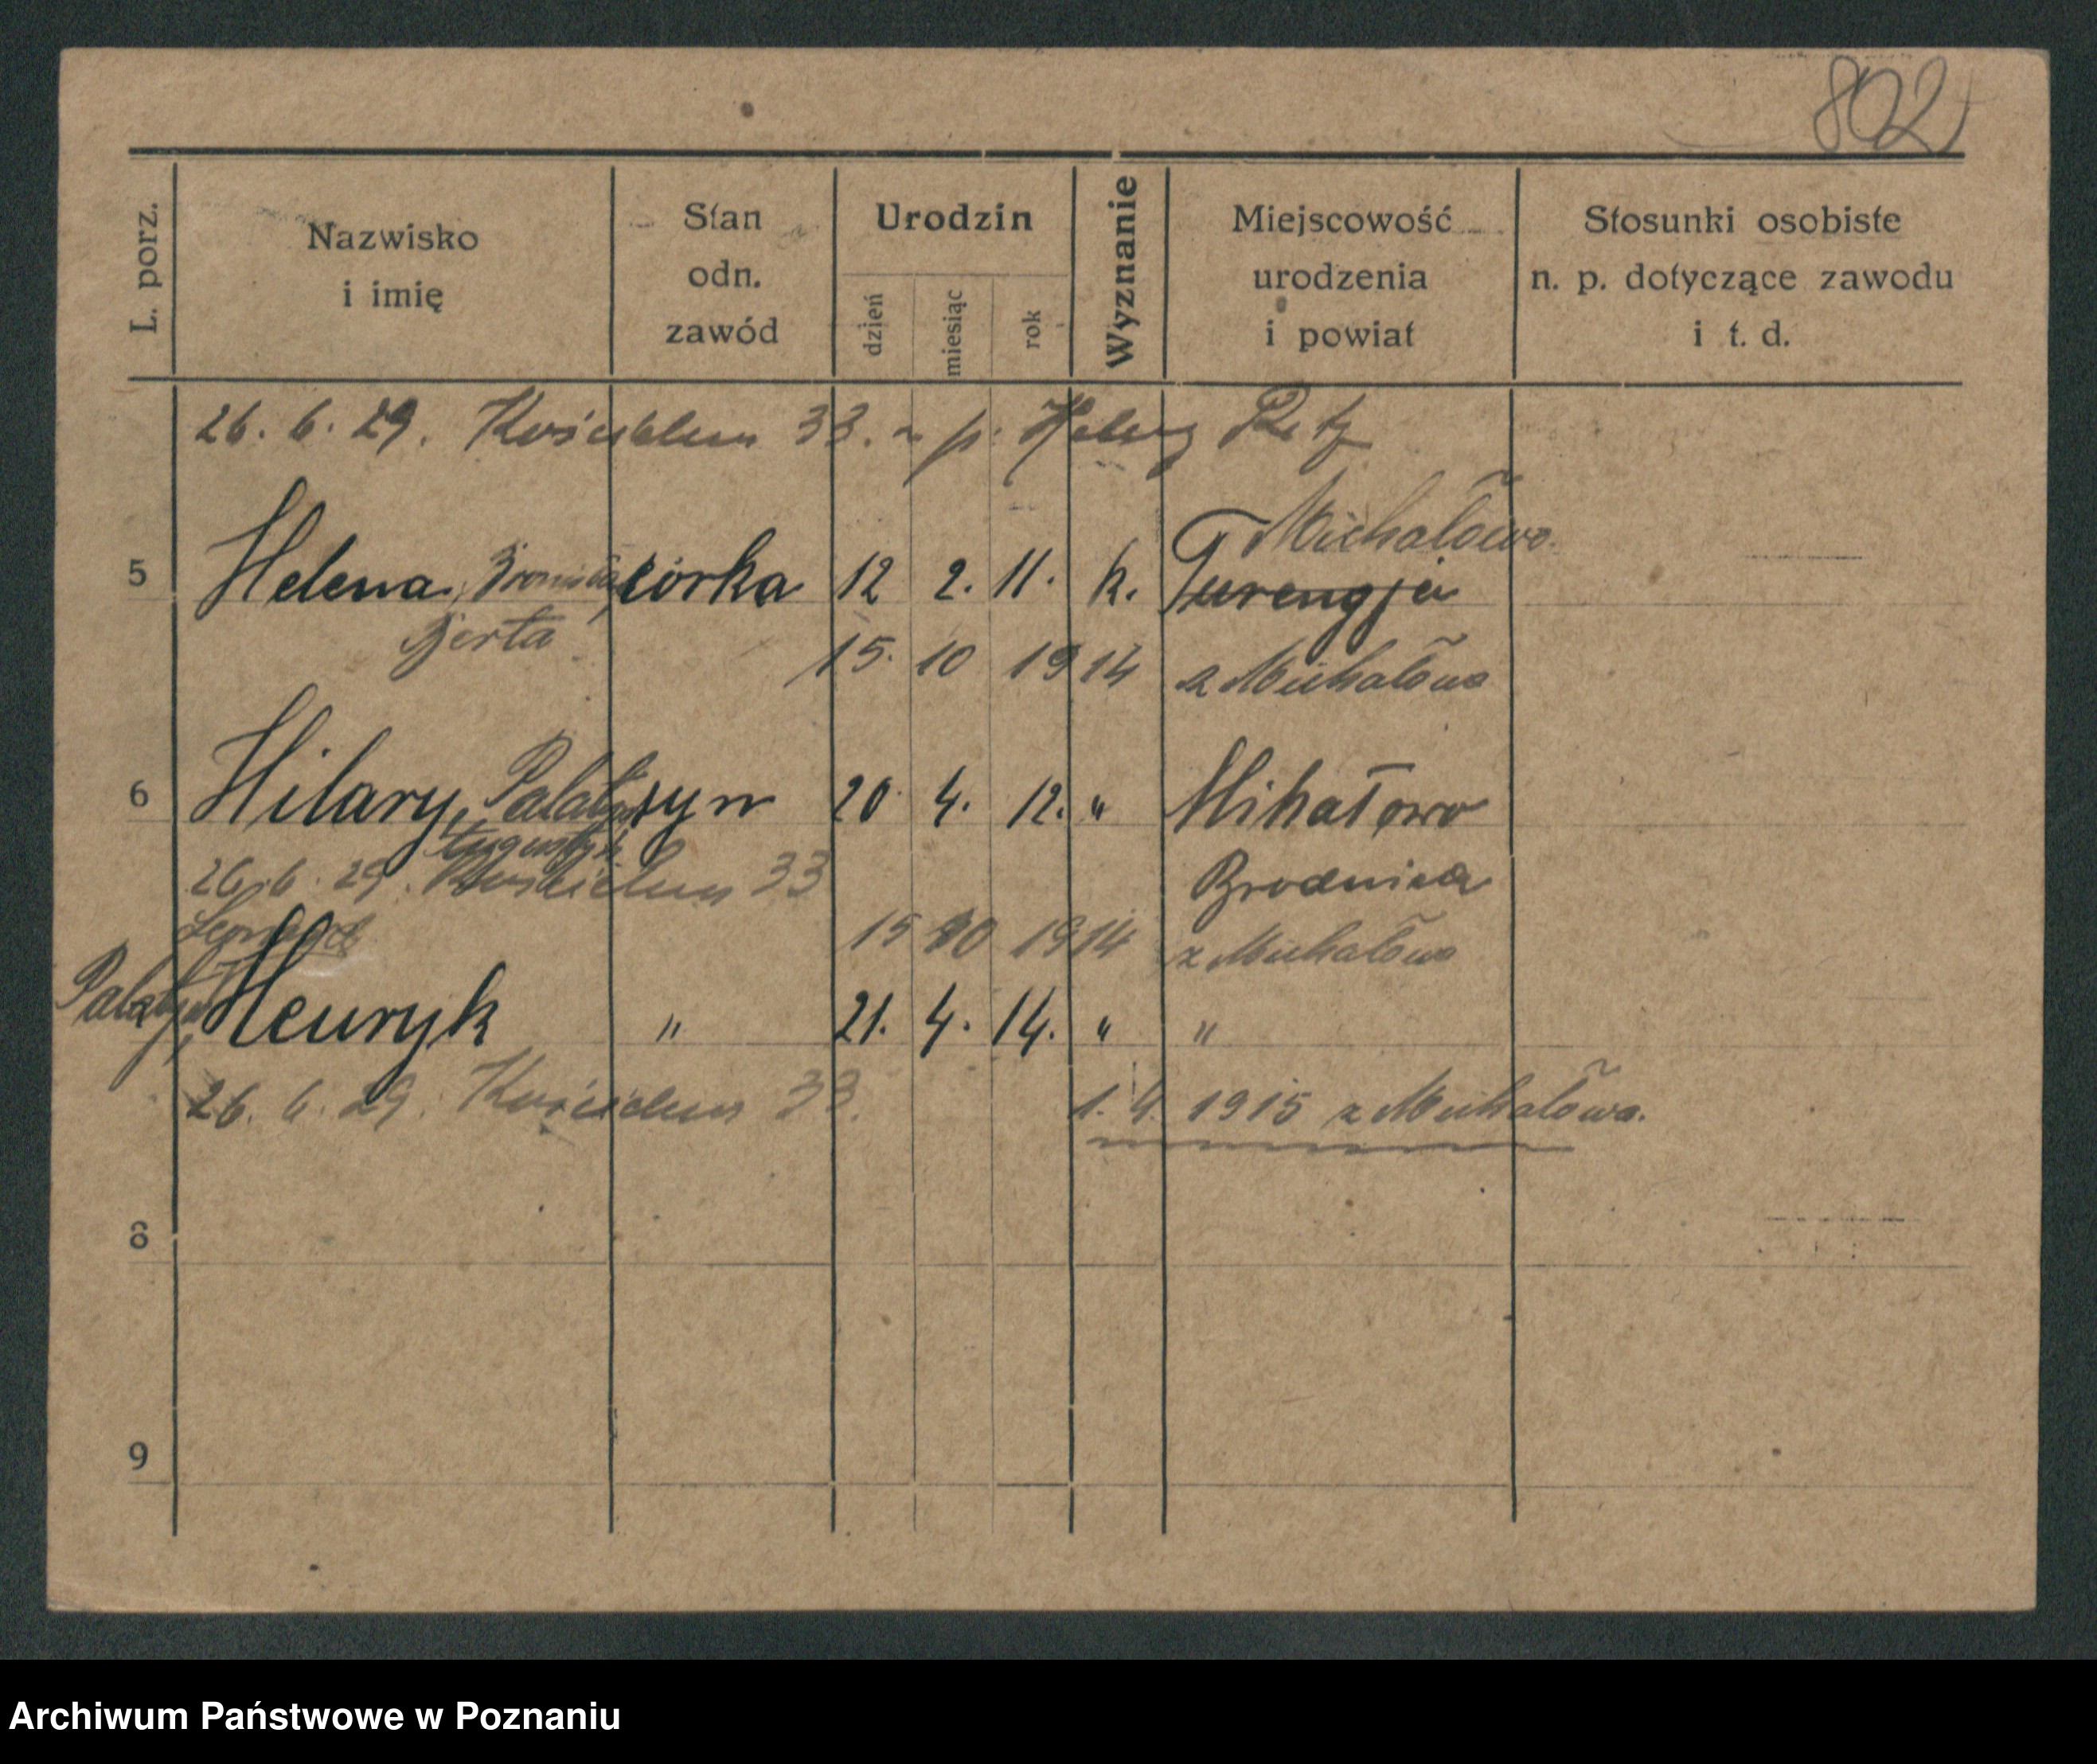 802
L. porz.
Nazwisko
i imię
Stan
odn.
zawód
Urodzin
dzień
miesiąc
rok
Wyznanie
Miejscowość
urodzenia
i powiat
Stosunki osobiste
n. p. dotyczące zawodu
i t. d.
26. 6. 29. 33. p. Heleny
Michałowo
5 Helena, córka 12 2. 11. k. Turengja
Berta 15. 10 1914 z Michałowa
6 Hilary, syn 20. 4. 12. " Mihałowo
26. 6. 29. 33 Brodnica
15 10 1914 z Michałowa
Henryk " 21. 4. 14. " "
26. 6. 29. 33. 1. 4. 1915 z Michałowa.
8
9
Archiwum Państwowe w Poznaniu